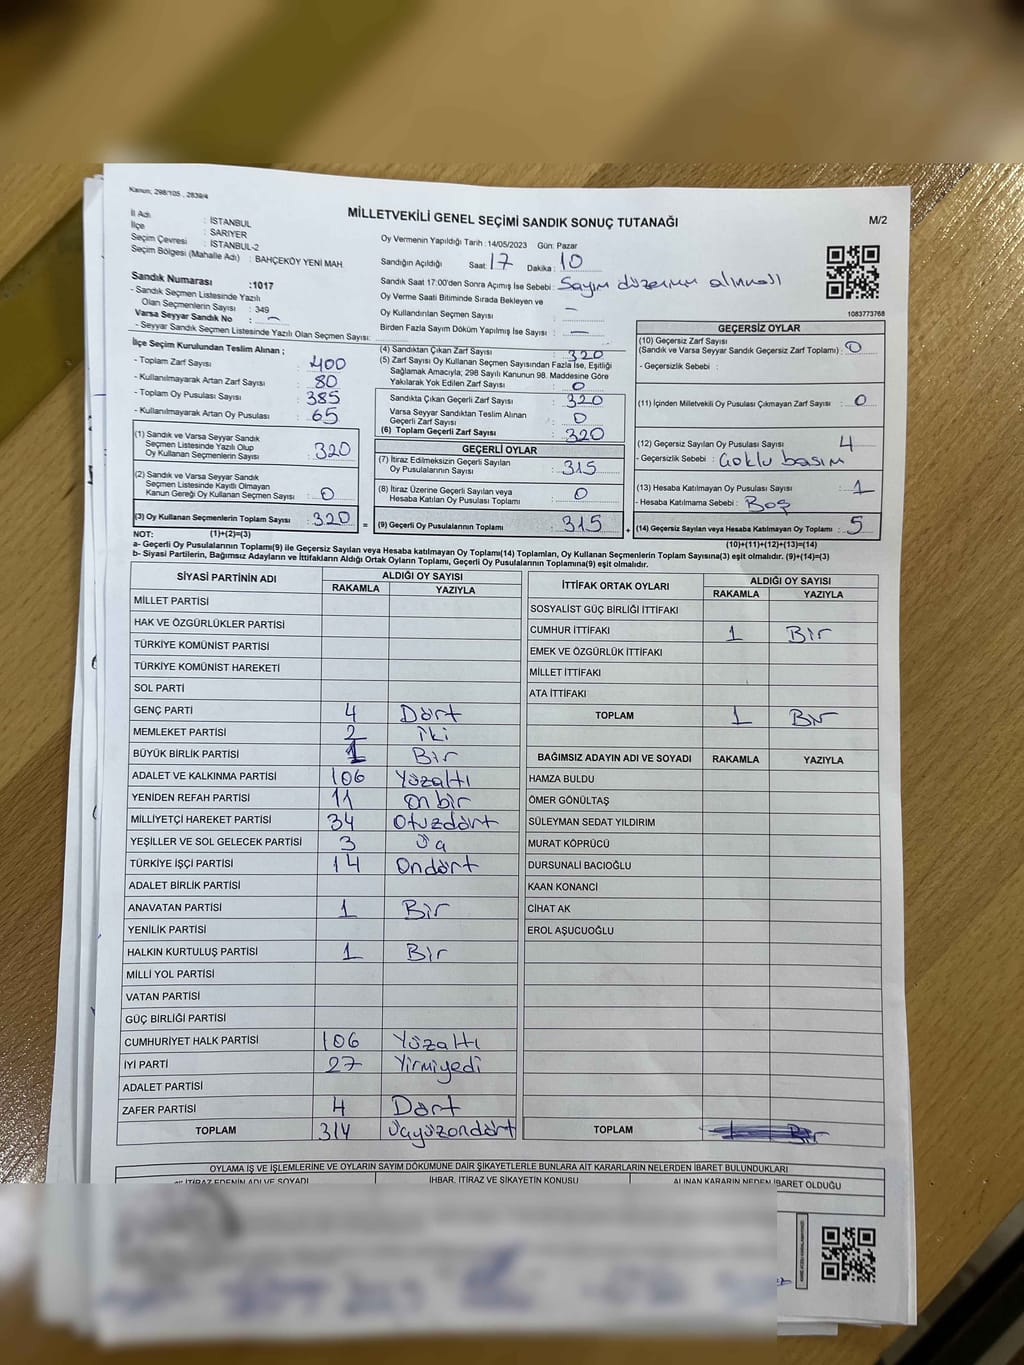 Kanun; 298/105 , 2839/4
MİLLETVEKİLİ GENEL SEÇİMİ SANDIK SONUÇ TUTANAĞI
M/2
İl Adı : İSTANBUL
İlçe : SARIYER
Seçim Çevresi : İSTANBUL-2
Seçim Bölgesi (Mahalle Adı) : BAHÇEKÖY YENİ MAH.
Oy Vermenin Yapıldığı Tarih : 14/05/2023 Gün: Pazar
Sandığın Açıldığı Saat: 17 Dakika : 10
Sandık Saat 17:00'den Sonra Açımış İse Sebebi : Sayım düzenin alınması
Oy Verme Saati Bitiminde Sırada Bekleyen ve
Oy Kullandırılan Seçmen Sayısı : —
Birden Fazla Sayım Döküm Yapılmış İse Sayısı : —
1083773768
Sandık Numarası : 1017
- Sandık Seçmen Listesinde Yazılı
Olan Seçmenlerin Sayısı : 349
Varsa Seyyar Sandık No : —
- Seyyar Sandık Seçmen Listesinde Yazılı Olan Seçmen Sayısı:
İlçe Seçim Kurulundan Teslim Alınan ;
- Toplam Zarf Sayısı : 400
- Kullanılmayarak Artan Zarf Sayısı : 80
- Toplam Oy Pusulası Sayısı : 385
- Kullanılmayarak Artan Oy Pusulası : 65
(1) Sandık ve Varsa Seyyar Sandık
Seçmen Listesinde Yazılı Olup
Oy Kullanan Seçmenlerin Sayısı : 320
(2) Sandık ve Varsa Seyyar Sandık
Seçmen Listesinde Kayıtlı Olmayan
Kanun Gereği Oy Kullanan Seçmen Sayısı : 0
(3) Oy Kullanan Seçmenlerin Toplam Sayısı : 320 =
(4) Sandıktan Çıkan Zarf Sayısı : 320
(5) Zarf Sayısı Oy Kullanan Seçmen Sayısından Fazla İse, Eşitliği
Sağlamak Amacıyla; 298 Sayılı Kanunun 98. Maddesine Göre
Yakılarak Yok Edilen Zarf Sayısı : 0
Sandıkta Çıkan Geçerli Zarf Sayısı : 320
Varsa Seyyar Sandıktan Teslim Alınan
Geçerli Zarf Sayısı : 0
(6) Toplam Geçerli Zarf Sayısı : 320
GEÇERLİ OYLAR
(7) İtiraz Edilmeksizin Geçerli Sayılan
Oy Pusulalarının Sayısı : 315
(8) İtiraz Üzerine Geçerli Sayılan veya
Hesaba Katılan Oy Pusulası Toplamı : 0
(9) Geçerli Oy Pusulalarının Toplamı : 315 +
GEÇERSİZ OYLAR
(10) Geçersiz Zarf Sayısı
(Sandık ve Varsa Seyyar Sandık Geçersiz Zarf Toplamı) : 0
- Geçersizlik Sebebi :
(11) İçinden Milletvekili Oy Pusulası Çıkmayan Zarf Sayısı : 0
(12) Geçersiz Sayılan Oy Pusulası Sayısı : 4
- Geçersizlik Sebebi : Çoklu basım
(13) Hesaba Katılmayan Oy Pusulası Sayısı : 1
- Hesaba Katılmama Sebebi : Boş
(14) Geçersiz Sayılan veya Hesaba Katılmayan Oy Toplamı : 5
NOT: (1)+(2)=(3) (10)+(11)+(12)+(13)=(14)
a- Geçerli Oy Pusulalarının Toplamı(9) ile Geçersiz Sayılan veya Hesaba katılmayan Oy Toplamı(14) Toplamları, Oy Kullanan Seçmenlerin Toplam Sayısına(3) eşit olmalıdır. (9)+(14)=(3)
b- Siyasi Partilerin, Bağımsız Adayların ve İttifakların Aldığı Ortak Oyların Toplamı, Geçerli Oy Pusulalarının Toplamına(9) eşit olmalıdır.
SİYASİ PARTİNİN ADI ALDIĞI OY SAYISI
RAKAMLA YAZIYLA
MİLLET PARTİSİ
HAK VE ÖZGÜRLÜKLER PARTİSİ
TÜRKİYE KOMÜNİST PARTİSİ
TÜRKİYE KOMÜNİST HAREKETİ
SOL PARTİ
GENÇ PARTİ 4 Dört
MEMLEKET PARTİSİ 2 iki
BÜYÜK BİRLİK PARTİSİ 1 Bir
ADALET VE KALKINMA PARTİSİ 106 Yüzaltı
YENİDEN REFAH PARTİSİ 11 on bir
MİLLİYETÇİ HAREKET PARTİSİ 34 Otuzdört
YEŞİLLER VE SOL GELECEK PARTİSİ 3 Üç
TÜRKİYE İŞÇİ PARTİSİ 14 Ondört
ADALET BİRLİK PARTİSİ
ANAVATAN PARTİSİ 1 Bir
YENİLİK PARTİSİ
HALKIN KURTULUŞ PARTİSİ 1 Bir
MİLLİ YOL PARTİSİ
VATAN PARTİSİ
GÜÇ BİRLİĞİ PARTİSİ
CUMHURİYET HALK PARTİSİ 106 Yüzaltı
İYİ PARTİ 27 Yirmiyedi
ADALET PARTİSİ
ZAFER PARTİSİ 4 Dört
TOPLAM 314 Üçyüzondört
İTTİFAK ORTAK OYLARI ALDIĞI OY SAYISI
RAKAMLA YAZIYLA
SOSYALİST GÜÇ BİRLİĞİ İTTİFAKI
CUMHUR İTTİFAKI 1 Bir
EMEK VE ÖZGÜRLÜK İTTİFAKI
MİLLET İTTİFAKI
ATA İTTİFAKI
TOPLAM 1 Bir
BAĞIMSIZ ADAYIN ADI VE SOYADI RAKAMLA YAZIYLA
HAMZA BULDU
ÖMER GÖNÜLTAŞ
SÜLEYMAN SEDAT YILDIRIM
MURAT KÖPRÜCÜ
DURSUNALİ BACIOĞLU
KAAN KONANCI
CİHAT AK
EROL AŞUCUOĞLU
TOPLAM 1 Bir
OYLAMA İŞ VE İŞLEMLERİNE VE OYLARIN SAYIM DÖKÜMÜNE DAİR ŞİKAYETLERLE BUNLARA AİT KARARLARIN NELERDEN İBARET BULUNDUKLARI
İTİRAZ EDENİN ADI VE SOYADI İHBAR, İTİRAZ VE ŞİKAYETİN KONUSU ALINAN KARARIN NEDEN İBARET OLDUĞU